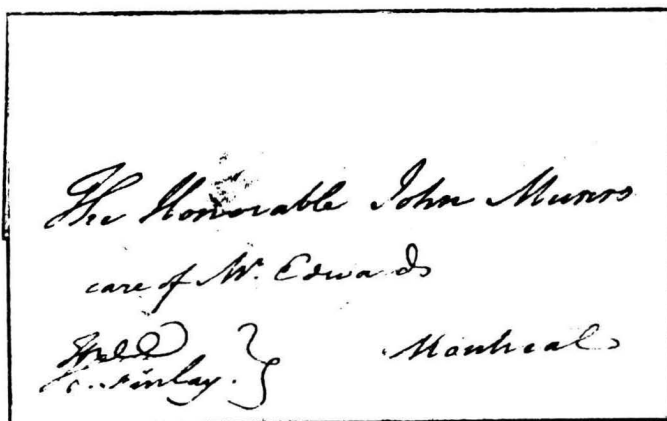 The Honorable John Munro
care of Mr. Edwards
Free
H. Finlay. } Montreal